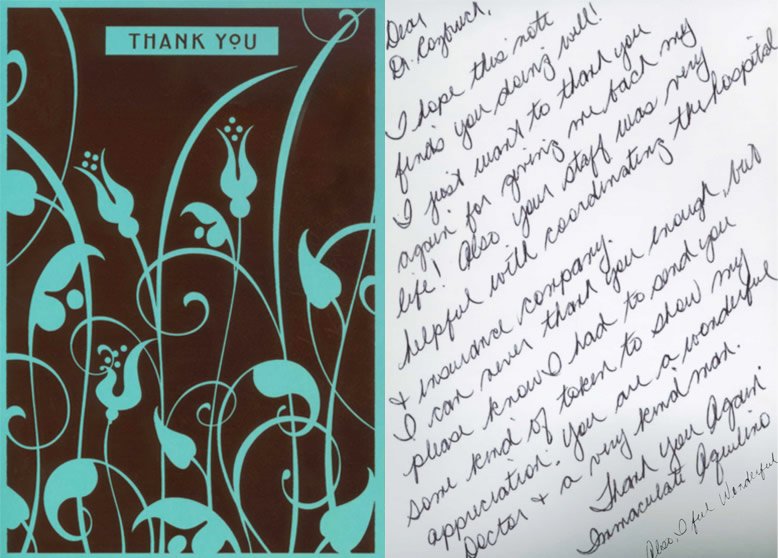 THANK YOU
Dear
Dr. Rozbruch,
I hope this note
finds you doing well!
I just want to thank you
again for giving me back my
life! Also your staff was very
helpful with coordinating the hospital
& insurance company.
I can never thank you enough, but
please know I had to send you
some kind of token to show my
appreciation. You are a wonderful
Doctor & a very kind man.
Thank You Again.
Immaculate Aquilino
Also, I feel Wonderful